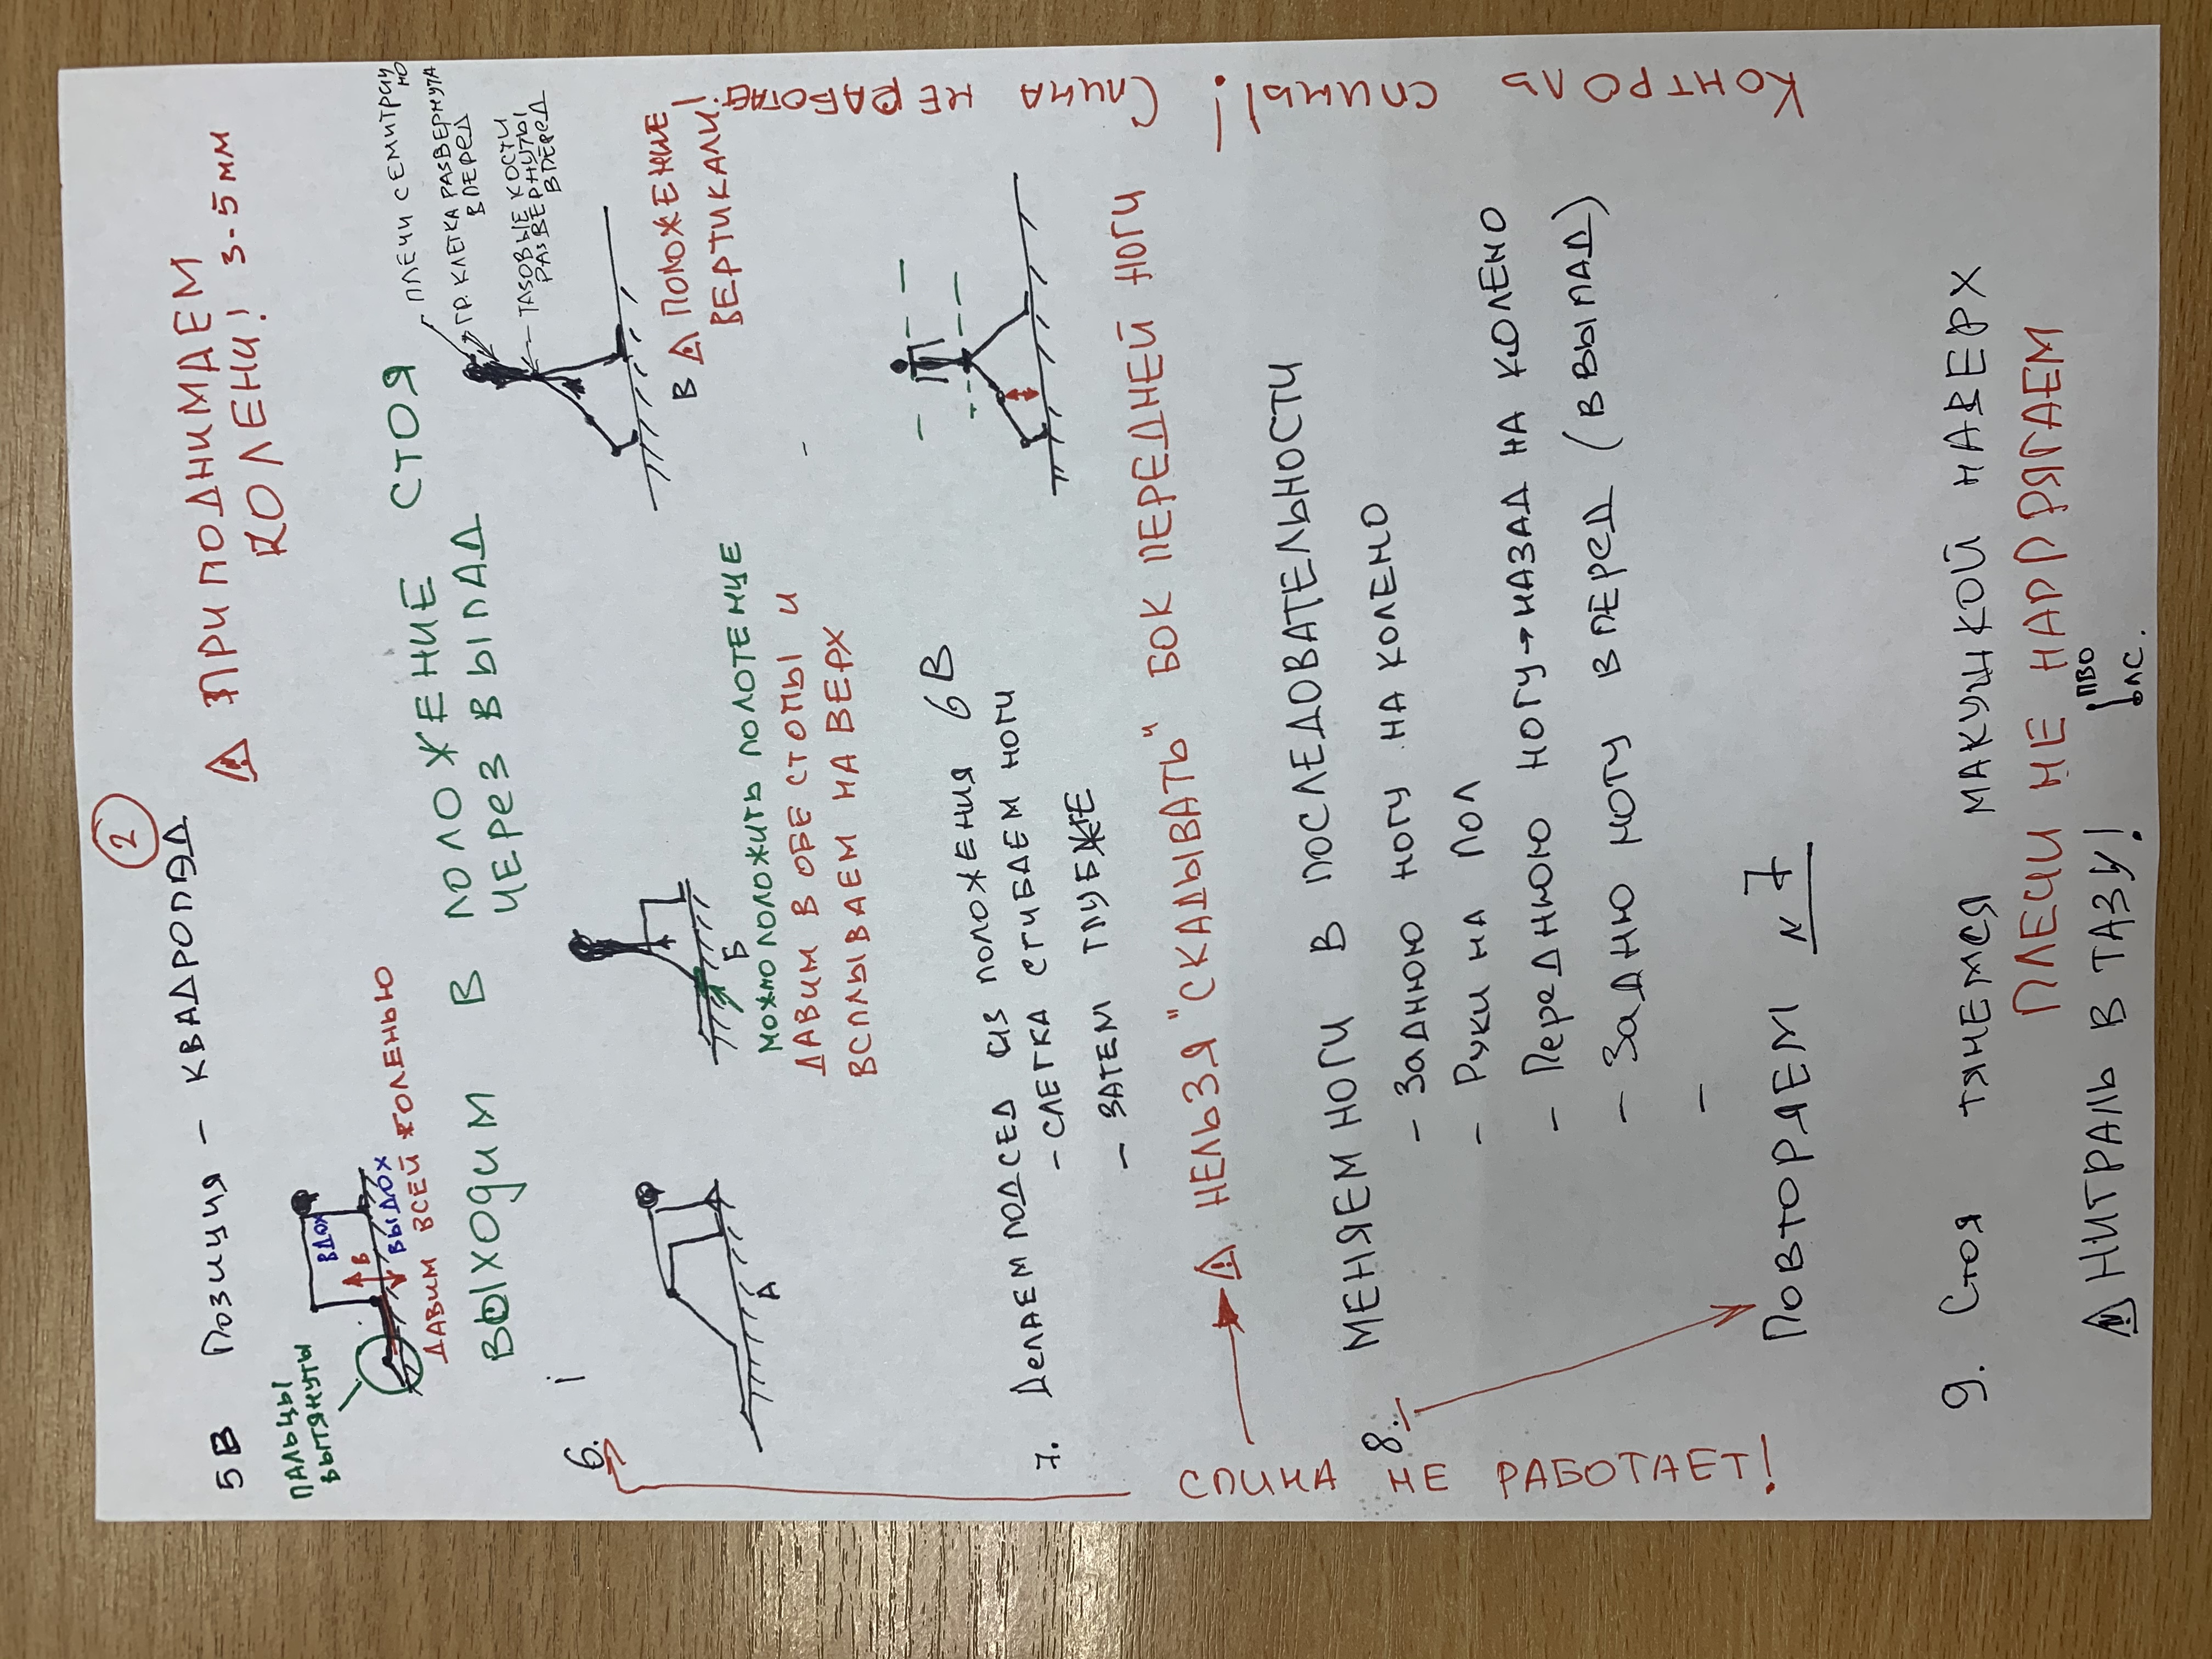 2
5В Позиция - КВАДРОПЭД
⚠ ПРИПОДНИМАЕМ
КОЛЕНИ! 3-5 мм
ПАЛЬЦЫ
ВЫТЯНУТЫ
ВДОХ
В
ВЫДОХ
ДАВИМ ВСЕЙ ГОЛЕНЬЮ
ВЫХОДИМ В ПОЛОЖЕНИЕ СТОЯ
ЧЕРЕЗ ВЫПАД
ПЛЕЧИ СЕМИТРИЧ
НО
ГР. КЛЕТКА РАЗВЕРНУТА
ВПЕРЕД
ТАЗОВЫЕ КОСТИ
РАЗВЕРНУТЫ
ВПЕРЕД
6.
А
Б
МОЖНО ПОЛОЖИТЬ ПОЛОТЕНЦЕ
ДАВИМ В ОБЕ СТОПЫ И
ВСПЛЫВАЕМ НА ВЕРХ
В ⚠ ПОЛОЖЕНИЕ
ВЕРТИКАЛИ!
7. ДЕЛАЕМ ПОДСЕД ИЗ ПОЛОЖЕНИЯ 6В
- СЛЕГКА СГИБАЕМ НОГИ
- ЗАТЕМ ГЛУБЖЕ
⚠ НЕЛЬЗЯ "СКАДЫВАТЬ" БОК ПЕРЕДНЕЙ НОГИ
8. МЕНЯЕМ НОГИ В ПОСЛЕДОВАТЕЛЬНОСТИ
- Заднюю ногу на колено
- Руки на пол
- Переднюю ногу → назад на колено
- Задню ногу вперед (в выпад)
-
ПОВТОРЯЕМ N 7
СПИНА НЕ РАБОТАЕТ!
КОНТРОЛЬ СПИНЫ! СПИНА НЕ РАБОТАЕТ
9. Стоя тянемся макушкой наверх
ПЛЕЧИ НЕ НАПРЯГАЕМ
⚠ НИТРАЛЬ В ТАЗУ!
ПВО
ПС.